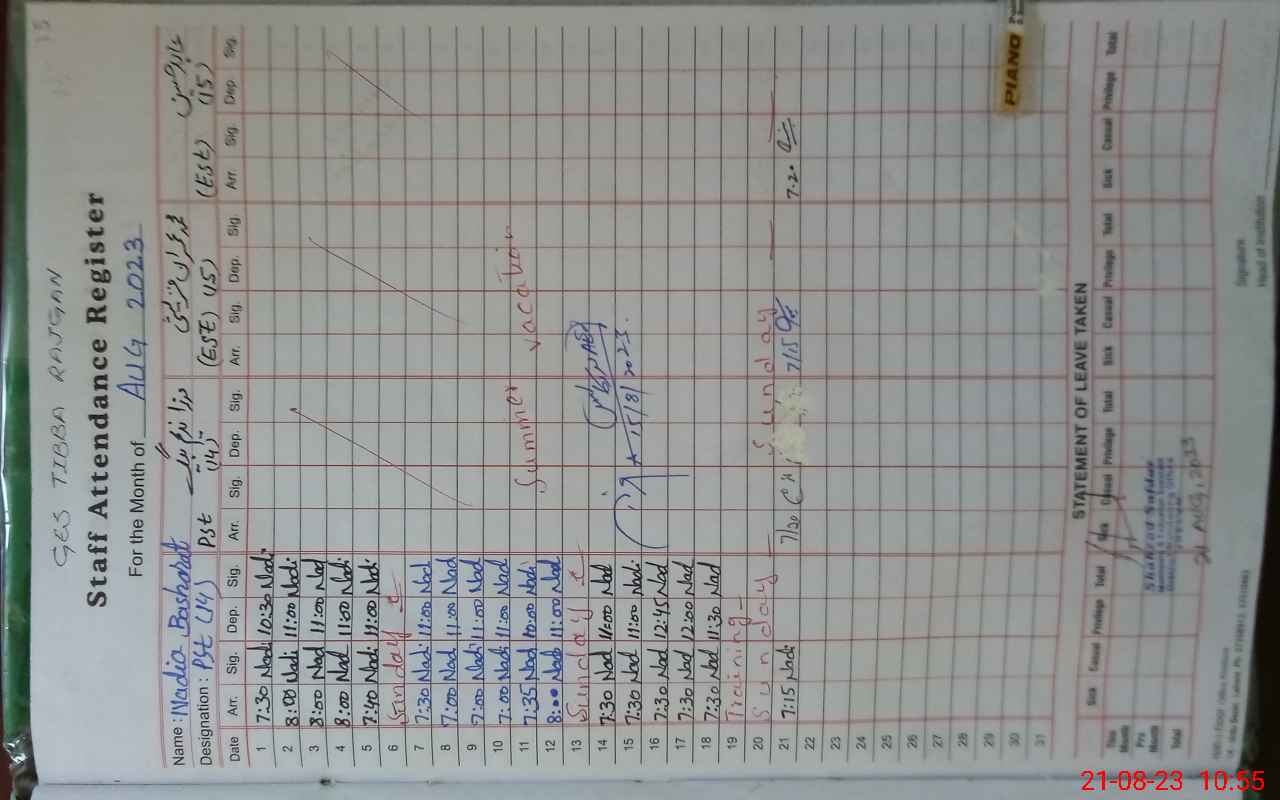 GES TIBBA RAJGAN
Staff Attendance Register
For the Month of AUG 2023
Name : Nadia Basharat
Designation : PSt (14) PSt (14) (ESt) (15) (ESt) (15)
Date Arr. Sig. Dep. Sig. Arr. Sig. Dep. Sig. Arr. Sig. Dep. Sig. Arr. Sig. Dep. Sig.
1 7:30 Nadi 10:30 Nadi
2 8:00 Nadi 11:00 Nadi
3 8:00 Nad 11:00 Nad
4 8:00 Nad 11:00 Nadi
5 7:40 Nadi 11:00 Nadi
6 Sunday
7 7:30 Nadi 11:00 Nad
8 7:00 Nad 11:00 Nad
9 7:00 Nadi 11:00 Nad
10 7:00 Nadi 11:00 Nad
11 7:35 Nad 10:00 Nadi Summer vacation
12 8:00 Nad 11:00 Nad
13 Sunday
14 7:30 Nad 11:00 Nad
15 7:30 Nad 11:00 Nadi 15/8/2023.
16 7:30 Nad 12:45 Nad
17 7:30 Nad 12:00 Nad
18 7:30 Nad 11:30 Nad
19 Training
20 Sunday Sunday
21 7:15 Nadi 7/20 7/15 7.20
22
23
24
25
26
27
28
29
30
31
PIANO
STATEMENT OF LEAVE TAKEN
Sick Casual Privilege Total Sick Casual Privilege Total Sick Casual Privilege Total Sick Casual Privilege Total
This Month
Pre Month
Total
Shahzad Safdar
21 AUG, 2023
Signature
Head of Institution
21-08-23 10:55